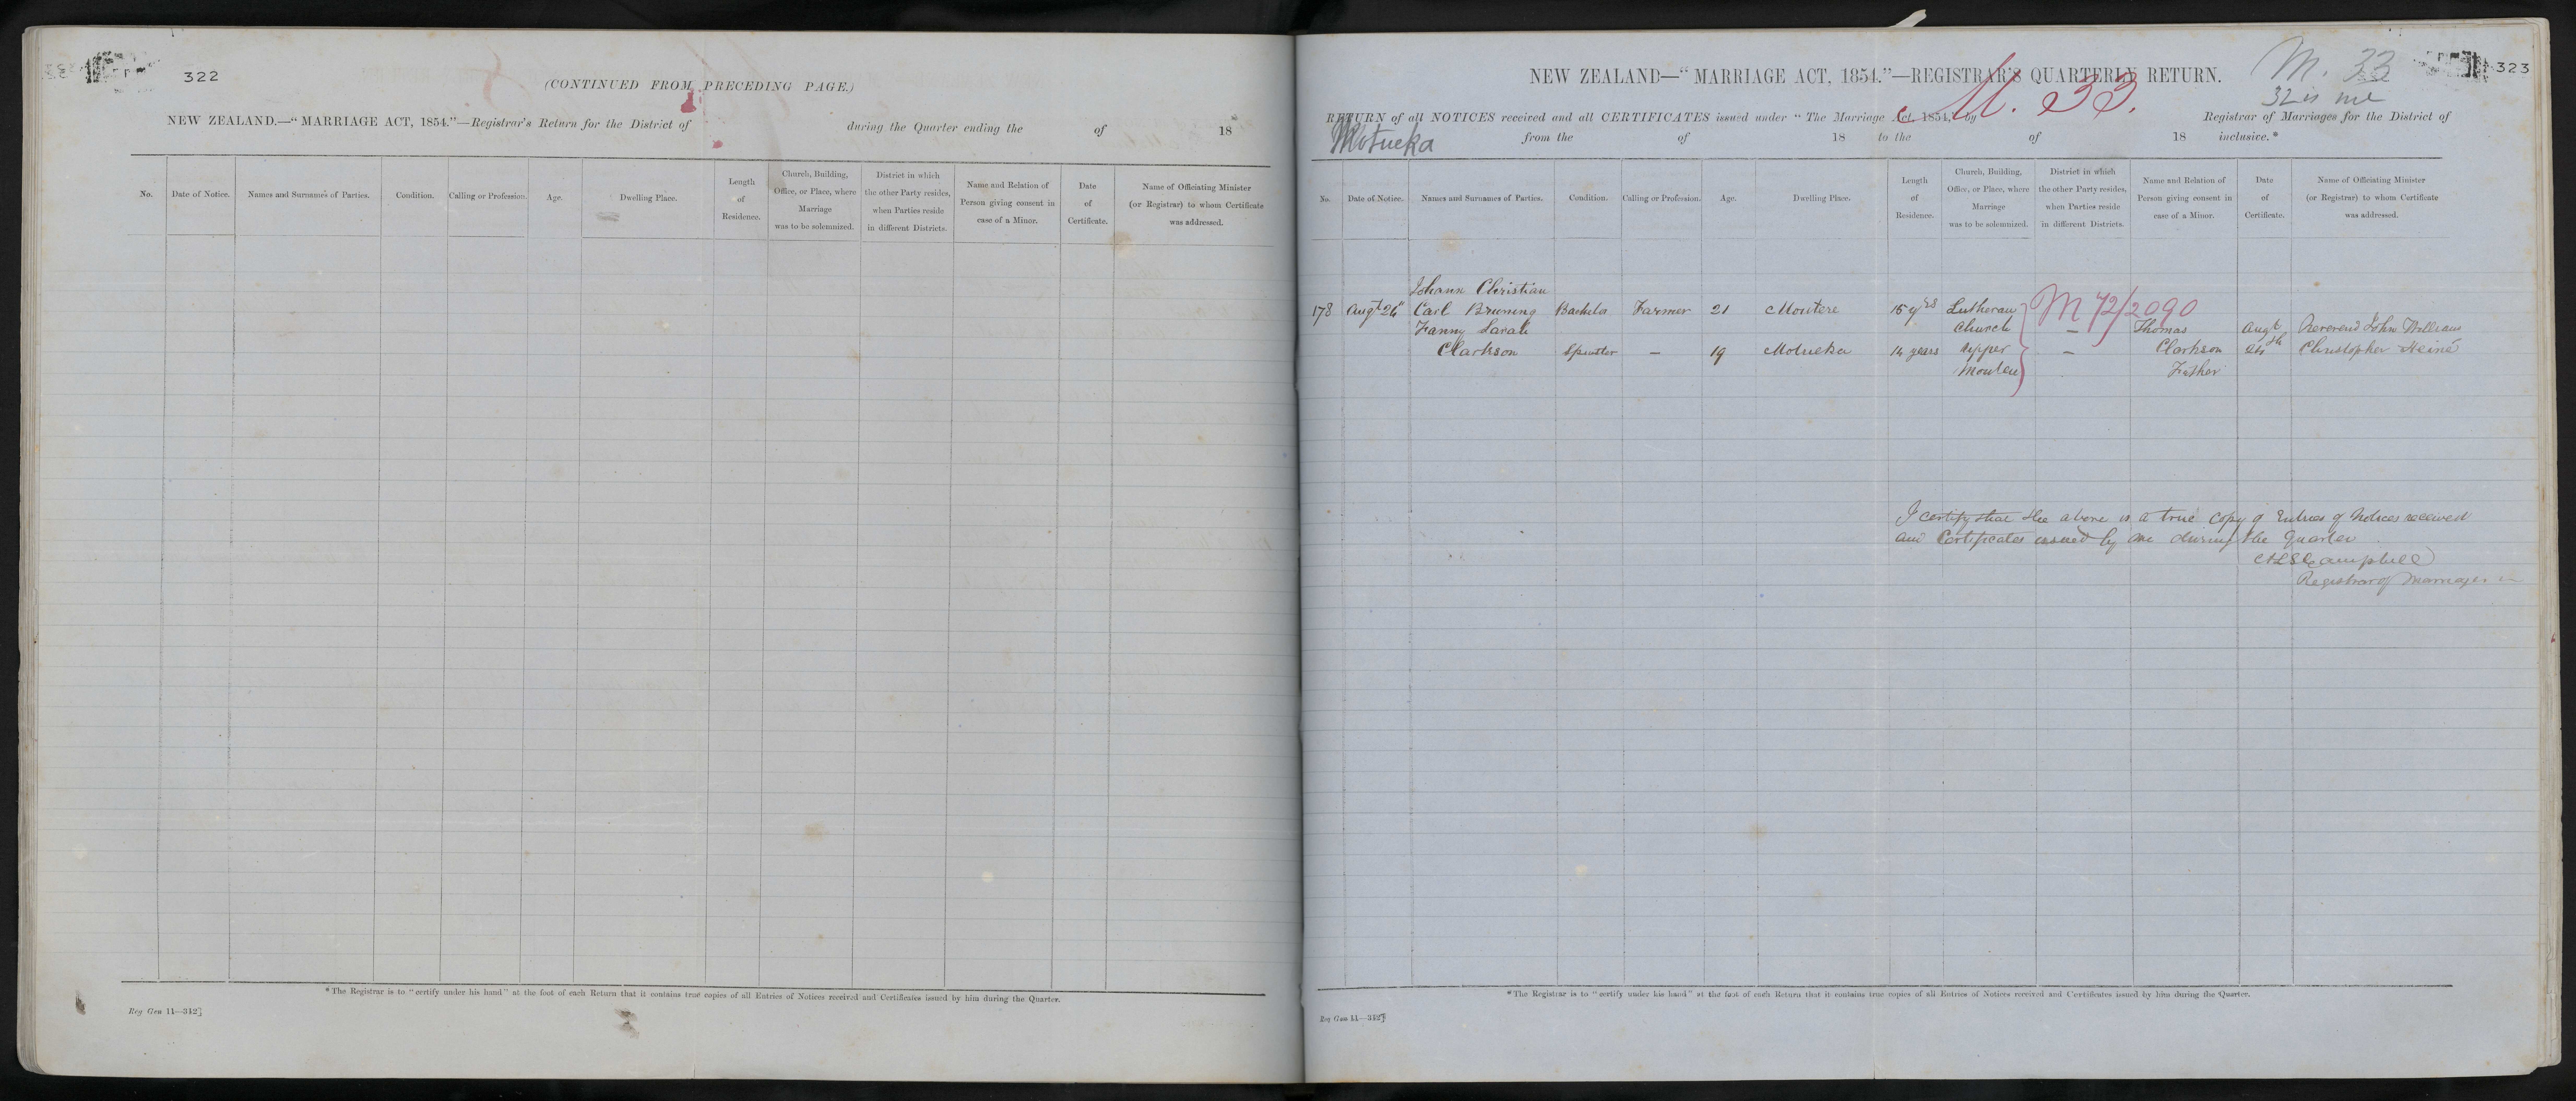 322
(CONTINUED FROM PRECEDING PAGE.)
NEW ZEALAND.—"MARRIAGE ACT, 1854."—Registrar's Return for the District of during the Quarter ending the of 18
No.
Date of Notice.
Names and Surnames of Parties.
Condition.
Calling or Profession.
Age.
Dwelling Place.
Length
of
Residence.
Church, Building,
Office, or Place, where
Marriage
was to be solemnized.
District in which
the other Party resides,
when Parties reside
in different Districts.
Name and Relation of
Person giving consent in
case of a Minor.
Date
of
Certificate.
Name of Officiating Minister
(or Registrar) to whom Certificate
was addressed.
*The Registrar is to "certify under his hand" at the foot of each Return that it contains true copies of all Entries of Notices received and Certificates issued by him during the Quarter.
Reg Gen 11—312]
323
M. 33
NEW ZEALAND—"MARRIAGE ACT, 1854."—REGISTRAR'S QUARTERLY RETURN.
M. 33.
RETURN of all NOTICES received and all CERTIFICATES issued under "The Marriage Act, 1854," by Registrar of Marriages for the District of
Motueka from the of 18 to the of 18 inclusive.*
No.
Date of Notice.
Names and Surnames of Parties.
Condition.
Calling or Profession.
Age.
Dwelling Place.
Length
of
Residence.
Church, Building,
Office, or Place, where
Marriage
was to be solemnized.
District in which
the other Party resides,
when Parties reside
in different Districts.
Name and Relation of
Person giving consent in
case of a Minor.
Date
of
Certificate.
Name of Officiating Minister
(or Registrar) to whom Certificate
was addressed.
Johann Christian
178 Augt 26 Carl Bruning Bachelor Farmer 21 Moutere 15 yrs Lutheran M 72/2090
Fanny Sarah Church — Thomas Augt Reverend John William
Clarkson Spinster — 19 Motueka 14 years Upper — Clarkson 26th Christopher Heiné
Moutere Father
I certify that the above is a true copy of Entries of Notices received
and Certificates issued by me during the Quarter
Campbell
Registrar of Marriages
*The Registrar is to "certify under his hand" at the foot of each Return that it contains true copies of all Entries of Notices received and Certificates issued by him during the Quarter.
Reg Gen 11—312]